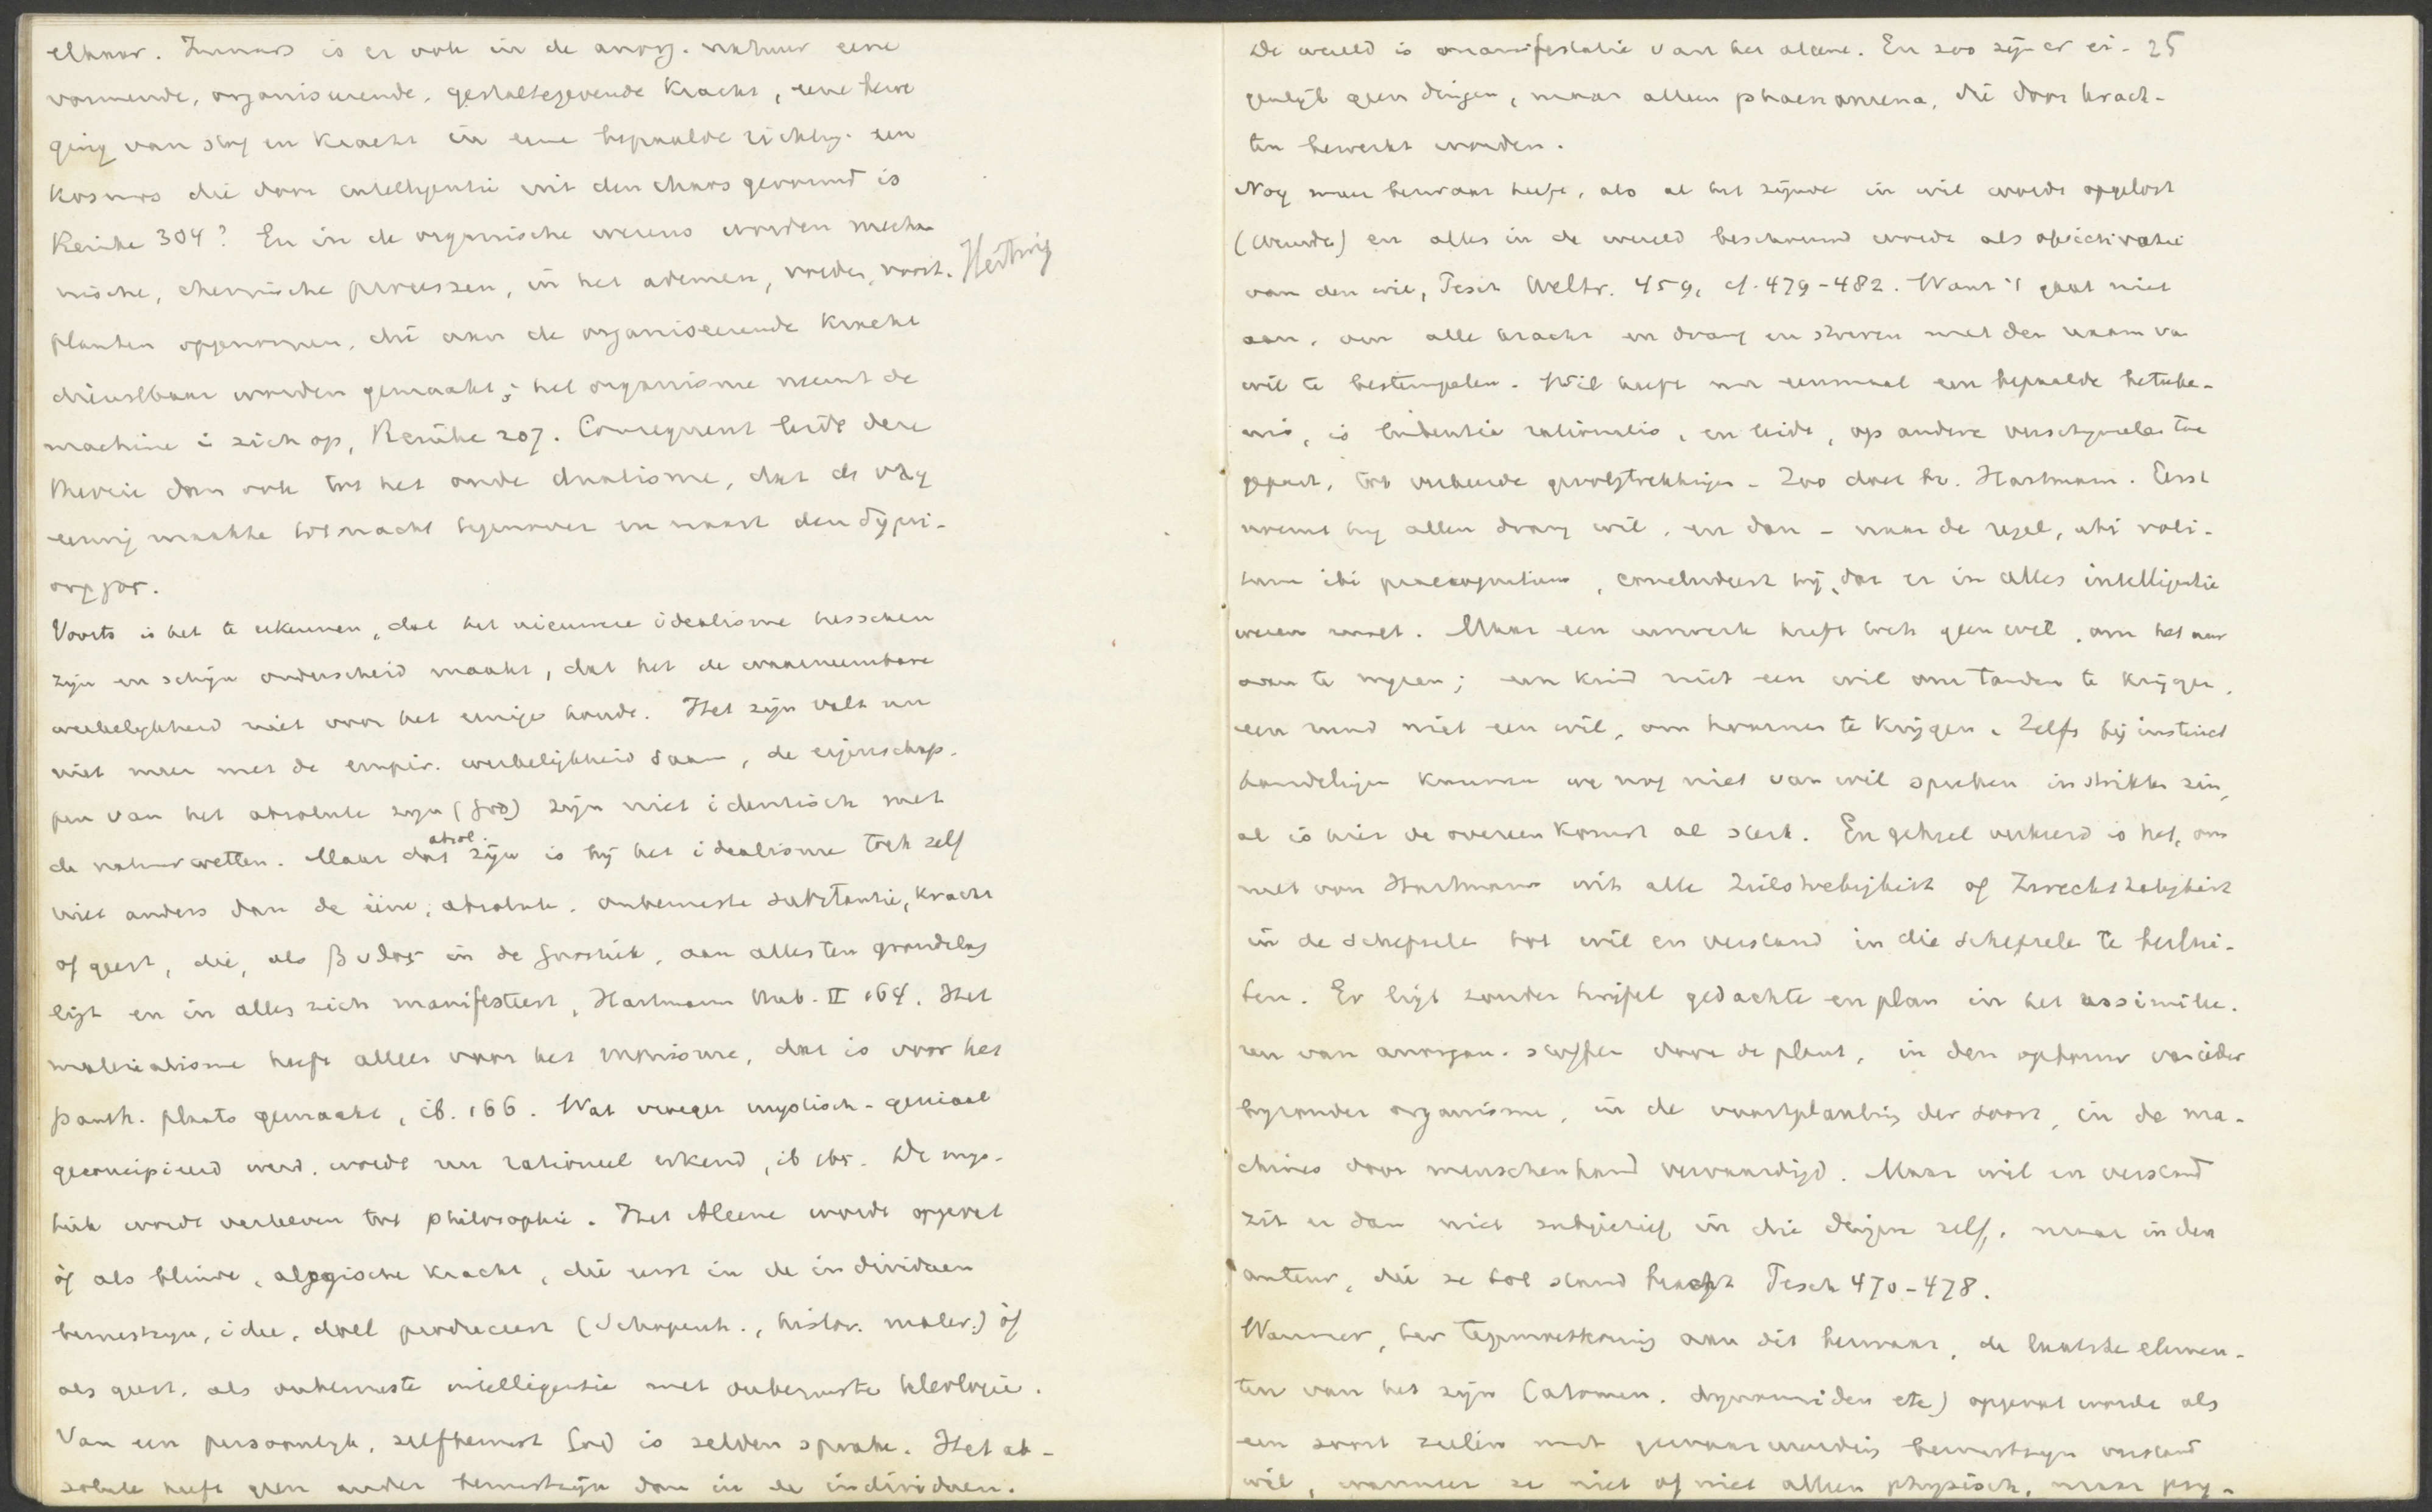 elkaar. Immers is er ook in de anorg. natuur eene
vormende, organiseerende, gestaltegevende kracht, eene bewe
ging van stof en kracht in eene bepaalde richtg. een
kosmos die door intelligentie uit den chaos gevormd is
Reinke 304? En in de organische wezens worden mecha
nische, chemische processen, in het ademen, voeden, voort. Hertwig
planten opgenomen, die aan de organiseerende kracht
dienstbaar worden gemaakt; het organisme neemt de
machine i zich op, Reinke 207. Consequent leidt deze
theorie dan ook tot het oude dualisme, dat de
eeuwig maakte tegenover en naast den

Voorts is het te erkennen, dat het nieuwere idealisme tusschen
zijn en schijn onderscheid maakt, dat het de waarneembare
werkelijkheid niet voor het eenige houdt. Het zijn valt nu
niet meer met de empir. werkelijkheid saam, de eigenschap-
pen van het absolute zijn (God) zijn niet identisch met
de natuurwetten. Maar dat absol. zijn is bij het idealisme toch zelf
niet anders dan de ééne, absolute, onbewuste substantie, kracht
of geest, die, als βυθος in de Gnostiek, aan alles ten grondslag
ligt en in alles zich manifesteert, Hartmann II 164. Het
materialisme heeft alles voor het monisme, dat is voor het
panth. plaats gemaakt, ib. 166. Wat vroeger mystisch-geniaal
geconcipieerd werd, wordt nu rationeel erkend, ib 165. De mys-
tiek wordt verheven tot philosophie. Het Aleene wordt opgevat
òf als blinde, alogische kracht, die eerst in de individuen
bewustzijn, idee, doel produceert (Schopenh., histor. mater.) òf
als geest, als onbewuste intelligentie met onbewuste teleologie.
Van een persoonlijk, zelfbewust God is zelden sprake. Het ab-
solute heeft geen ander bewustzijn dan in de individuen.
De wereld is manifestatie van het aleene. En zoo zijn er ei- 25
genlijk geen dingen, maar alleen phaenomena, die door krach-
ten bewerkt worden.
Nog meer bezwaar heeft, als al het zijnde in wil wordt opgelost
(Wundt) en alles in de wereld beschouwd wordt als objectivatie
van den wil, Pesch Weltr. 459, cf. 479-482. Want 't gaat niet
aan, om alle kracht en drang en streven met den naam van
wil te bestempelen. Wil heeft nu eenmaal een bepaalde beteeke-
nis, is tendentia rationalis, en leidt, op andere verschijnselen toe
gepast, tot verkeerde gevolgtrekkingen. Zoo doet bv. Hartmann. Eerst
noemt hij allen drang wil, en dan - naar de regel, ubi voli-
tum ibi praecognitum, concludeert hij, dat er in alles intelligentie
wezen moet. Maar een uurwerk heeft toch geen wil, om het uur
aan te wijzen; een kind niet een wil om tanden te krijgen,
een rund niet een wil, om hoornen te krijgen. Zelfs bij instinct
handelingen kunnen we nog niet van wil spreken in strikten zin,
al is hier de overeenkomst al sterk. En geheel verkeerd is het, om
met von Hartmann uit alle Zielstrebigkeit of Zweckthätigkeit
in de schepselen tot wil en verstand in die schepselen te beslui-
ten. Er ligt zonder twijfel gedachte en plan in het assimilee-
ren van anorgan. stoffen door de plant, in den opbouw van ieder
bijzonder organisme, in de voortplanting der soort, in de ma-
chines door menschenhand vervaardigd. Maar wil en verstand
zit er dan niet subjectief in die dingen zelf, maar in den
auteur, die ze tot stand bracht Pesch 470-478.
Wanneer, ter tegemoetkoming aan dit bezwaar, de laatste elemen-
ten van het zijn (atomen, dynamiden etc) opgevat worden als
een soort zielen met gewaarwording bewustzijn verstand
wil, wanneer ze niet of niet alleen physisch, maar psy-